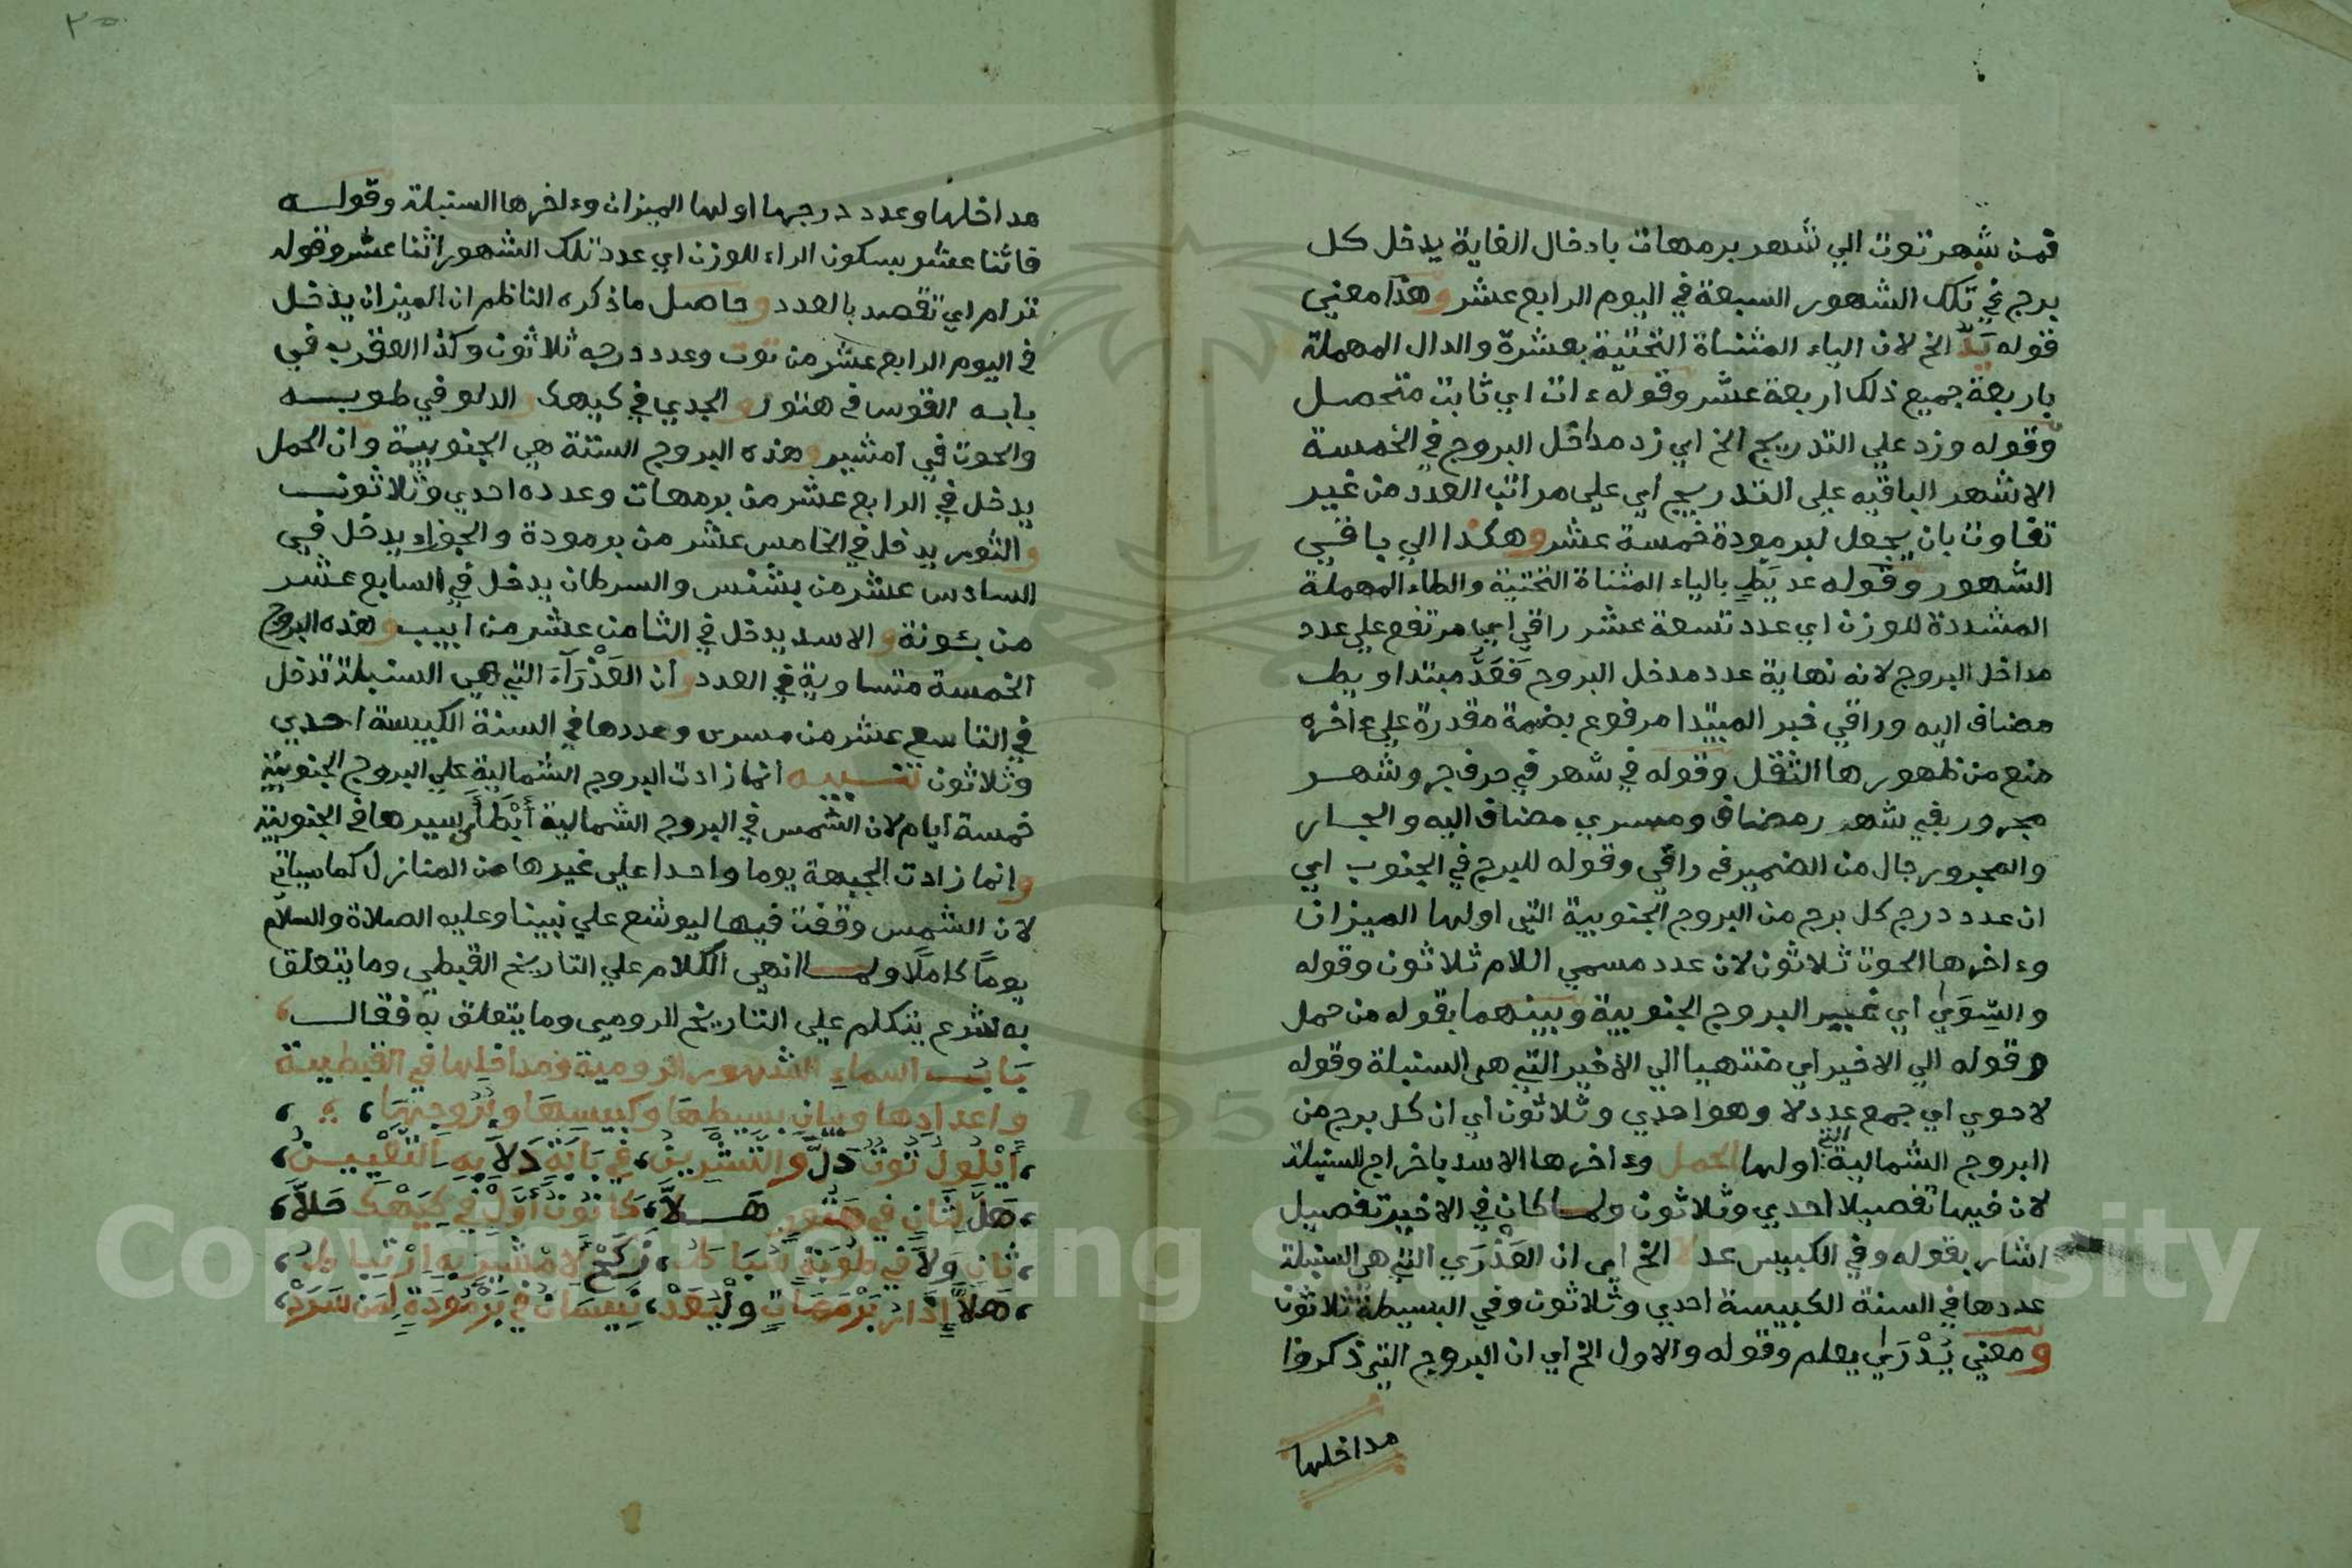 فمن شهر توت الي شهر برمهات بادخال الغاية يدخل كل
برج في تلك الشهور السبعة في اليوم الرابع عشر وهذا معني
قوله يَدّ الخ لان الياء المثناة التحتية بعشرة والدال المهملة
باربعة جميع ذلك اربعة عشر وقوله ءات اي ثابت متحصل
وقوله وزد علي التدريج الخ اي زد مداخل البروج في الخمسة
الاشهر الباقيه علي التدريج اي علي مراتب العدد من غير
تفاوت بان يجعل لبرمودة خمسة عشر وهكذا الي باقي
الشهور وقوله عد يَطٍ بالياء المثناة التحتية والطاء المهملة
المشددة للوزن اي عدد تسعة عشر راقي اي مرتفع علي عدد
مداخل البروج لانه نهاية عدد مدخل البروج فَعَدَّ مبتدا ويط
مضاف اليه وراقي خبر المبتدا مرفوع بضمة مقدرة علي ءاخره
منع من ظهورها الثقل وقوله في شهر في حرف جر وشهر
مجرور بفي شهر مضاف ومسري مضاف اليه والجار
والمجرور حال من الضمير في راقي وقوله للبرج في الجنوب اي
ان عدد درج كل برج من البروج الجنوبية التي اولها الميزان
وءاخرها الحوت ثلاثون لان عدد مسمي اللام ثلاثون وقوله
والسِّوَي اي غيير البروج الجنوبية وبينهما بقوله من حمل
وقوله الي الاخير اي منتهيا الي الاخير التي هي السنبلة وقوله
لا حوي اي جمع عدد لا وهو احدي وثلاثون اي ان كل برج من
البروج الشمالية التي اولها الحمل وءاخرها الاسد باخراج السنبلة
لان فيها تفصيلا احدي وثلاثون ولما كان في الاخير تفصيل
اشار بقوله وفي الكبيس عد لا الخ اي ان العَذْرَي التي هي السنبلة
عددها في السنة الكبيسة احدي وثلاثون وفي البسيطة ثلاثون
ومعني يَدْرَي يعلم وقوله والاول الخ اي ان البروج التي ذكروا
مداخلها
مداخلها وعدد درجها اولها الميزان وءاخرها السنبلة وقوله
فاثنا عشر بسكون الراء للوزن اي عدد تلك الشهور اثنا عشر وقوله
ترام اي تقصد بالعدد وحاصل ما ذكره الناظم ان الميزان يدخل
في اليوم الرابع عشر من توت وعدد درجه ثلاثون وكذا العقرب في
بابه القوس في هتور والجدي في كيهك والدلو في طوبه
والحوت في امشير وهذه البروج الستة هي الجنوبية وان الحمل
يدخل في الرابع عشر من برمهات وعدده احدي وثلاثون
والثور يدخل في الخامس عشر من برمودة والجوزاء يدخل في
السادس عشر من بشنس والسرطان يدخل في السابع عشر
من بئونة والاسد يدخل في الثامن عشر من ابيب وهذه البروج
الخمسة متساوية في العدد وان العَذْرَآءَ التي هي السنبلة تدخل
في التاسع عشر من مسرى وعددها في السنة الكبيسة احدي
وثلاثون تنبيه انما زادت البروج الشمالية علي البروج الجنوبية
خمسة ايام لان الشمس في البروج الشمالية أَبْطَأُ سيرها في الجنوبية
وانما زادت الجبهة يوما واحدا علي غيرها من المنازل كما سياتي
لان الشمس وقفت فيها ليوشع علي نبينا وعليه الصلاة والسلام
يوماً كاملاً ولما انهي الكلام علي التاريخ القبطي وما يتعلق
به شرع يتكلم علي التاريخ الرومي وما يتعلق به فقال
بَابُ اسماءِ الشهور الرومية ومداخلِها في القبطية
واعدادِها وبيان بسيطِها وكبيسِها وبُرُوجِهَا
أَيْلُولُ تُوتُ دَلَّ والتِّشْرِينُ في بَابَةِ دَلاَ بِهِ التَّعْيِينُ
هَلَّ لِثَانٍ في هَتُورِ هَـلاَّ كَانُونُ أَوَّلُ في كِيَهْك حَلاَّ
ثَانٍ وَلاَ في طُوبَةٍ شُبَاطُ زَكَحْ لاَمْشِيرَ بِهِ ارْتِبَاطُ
هَلاَّ إذَارُ بَرْمَهَاتٍ وَلْيُعَدْ نِيسَانُ في بَرْمُودَةٍ لِمَن سَرَدْ